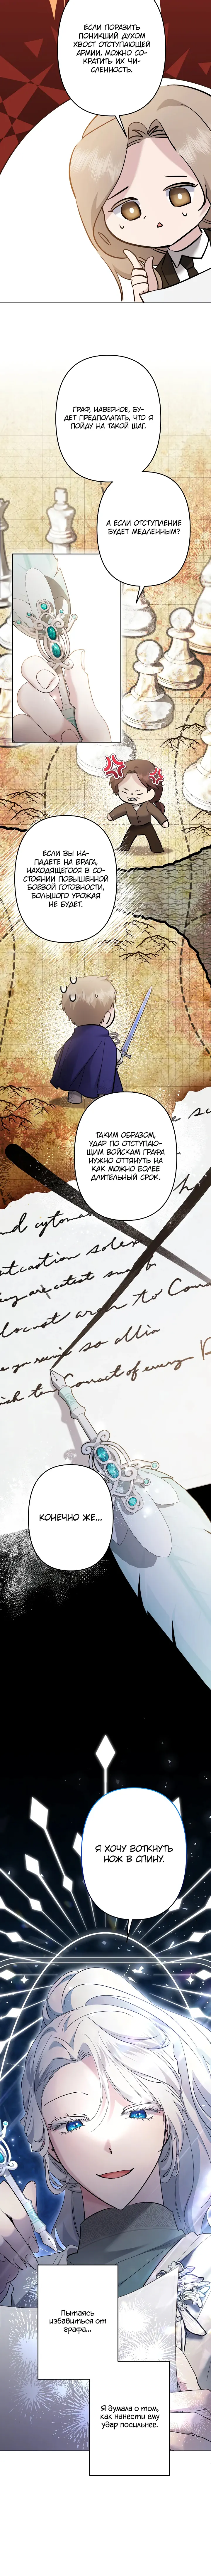 ЕСЛИ ПОРАЗИТЬ
ПОНИКШИЙ ДУХОМ
ХВОСТ ОТСТУПАЮЩЕЙ
АРМИИ, МОЖНО СО-
КРАТИТЬ ИХ ЧИ-
СЛЕННОСТЬ.
ГРАФ, НАВЕРНОЕ, БУ-
ДЕТ ПРЕДПОЛАГАТЬ, ЧТО Я
ПОЙДУ НА ТАКОЙ ШАГ.
А ЕСЛИ ОТСТУПЛЕНИЕ
БУДЕТ МЕДЛЕННЫМ?
ЕСЛИ ВЫ НА-
ПАДЕТЕ НА ВРАГА,
НАХОДЯЩЕГОСЯ В СО-
СТОЯНИИ ПОВЫШЕННОЙ
БОЕВОЙ ГОТОВНОСТИ,
БОЛЬШОГО УРОЖАЯ
НЕ БУДЕТ.
ТАКИМ ОБРАЗОМ,
УДАР ПО ОТСТУПАЮ-
ЩИМ ВОЙСКАМ ГРАФА
НУЖНО ОТТЯНУТЬ НА
КАК МОЖНО БОЛЕЕ
ДЛИТЕЛЬНЫЙ СРОК.
КОНЕЧНО ЖЕ...
Я ХОЧУ ВОТКНУТЬ
НОЖ В СПИНУ.
Пытаясь
избавиться от
графа...
Я думала о том,
как нанести ему
удар посильнее.